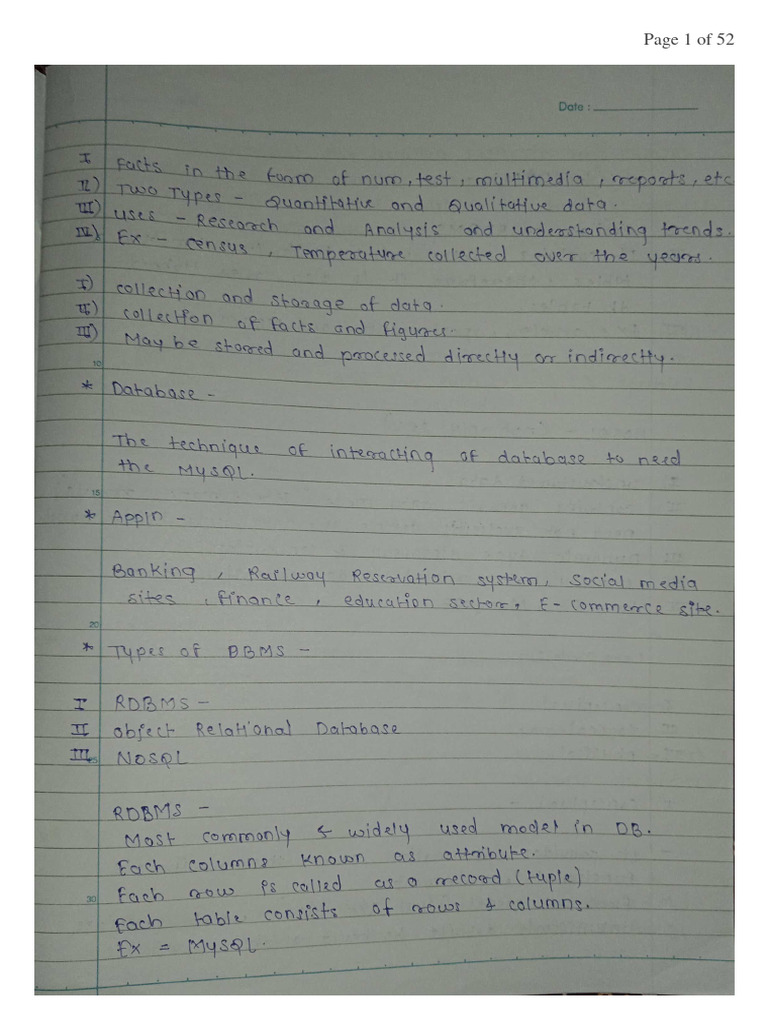 Page 1 of 52
Date :
I Facts in the form of num, test, multimedia, reports, etc
II) Two Types - Quantitative and Qualitative data.
III) uses - Research and Analysis and understanding trends.
IV) Ex - census, Temperature collected over the years.
I) collection and storage of data.
II) collection of facts and figures.
III) May be stored and processed directly or indirectly.
10
* Database -
The technique of interacting of database to need
the MySQL.
15
* Appln -
Banking, Railway Reservation system, social media
sites, finance, education sector, E-commerce site.
20
* Types of DBMS -
I RDBMS -
II object Relational Database
III NoSQL
25
RDBMS -
Most commonly & widely used model in DB.
Each columns known as attribute.
Each row is called as a record (tuple)
30
Each table consists of rows & columns.
Ex = MySQL.